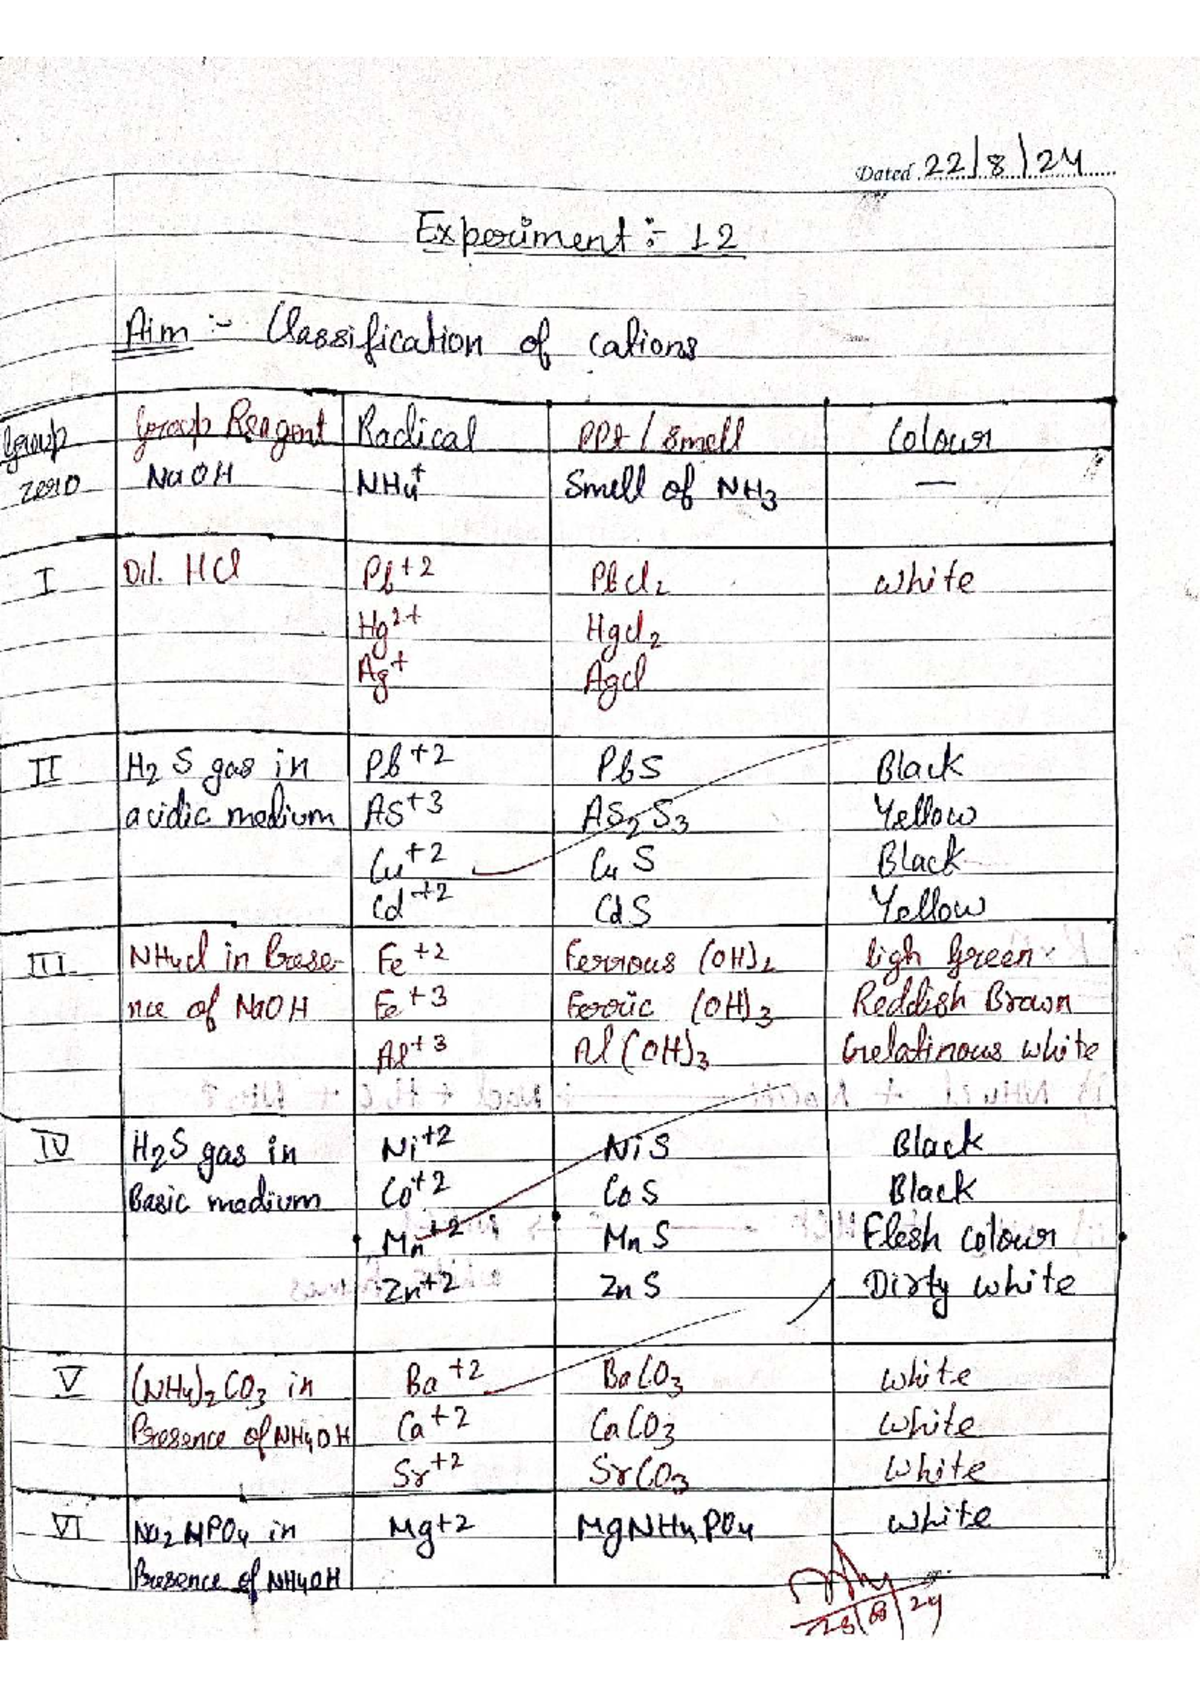 Dated 22/8/24
Experiment :- 12
Aim :- Classification of cations
Group Group Reagent Radical PPt / Smell Colour
zero NaOH NH4+ Smell of NH3 —
I Dil. HCl Pb+2 PbCl2 white
Hg2+ Hgcl2
Ag+ Agcl
II H2 S gas in Pb+2 PbS Black
acidic medium AS+3 AS2S3 Yellow
Cu+2 Cu S Black
Cd+2 CdS Yellow
III NH4cl in Prese- Fe+2 Ferrous (OH)2 ligh Green
nce of NaOH Fe+3 Ferric (OH)3 Reddish Brown
Al+3 Al(OH)3 Gelatinous white
IV H2S gas in Ni+2 NiS Black
Basic medium Co+2 CoS Black
Mn+2 Mn S Flesh colour
Zn+2 Zn S Dirty white
V (NH4)2CO3 in Ba+2 BaCO3 white
Presence of NH4OH Ca+2 CaCO3 white
Sr+2 SrCO3 white
VI Na2HPO4 in Mg+2 MgNH4PO4 white
Presence of NH4OH
28/8/24